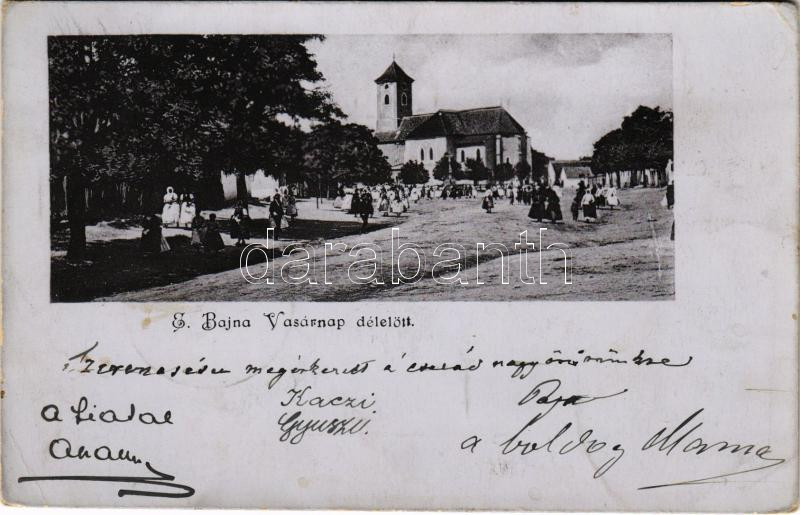 darabanth
S. Bajna Vasárnap délelőtt.
Szerencsésen megérkezett a család nagy örömünkre
Kaczi
Papa
a fiatal
Gyuszi.
a boldog Mama